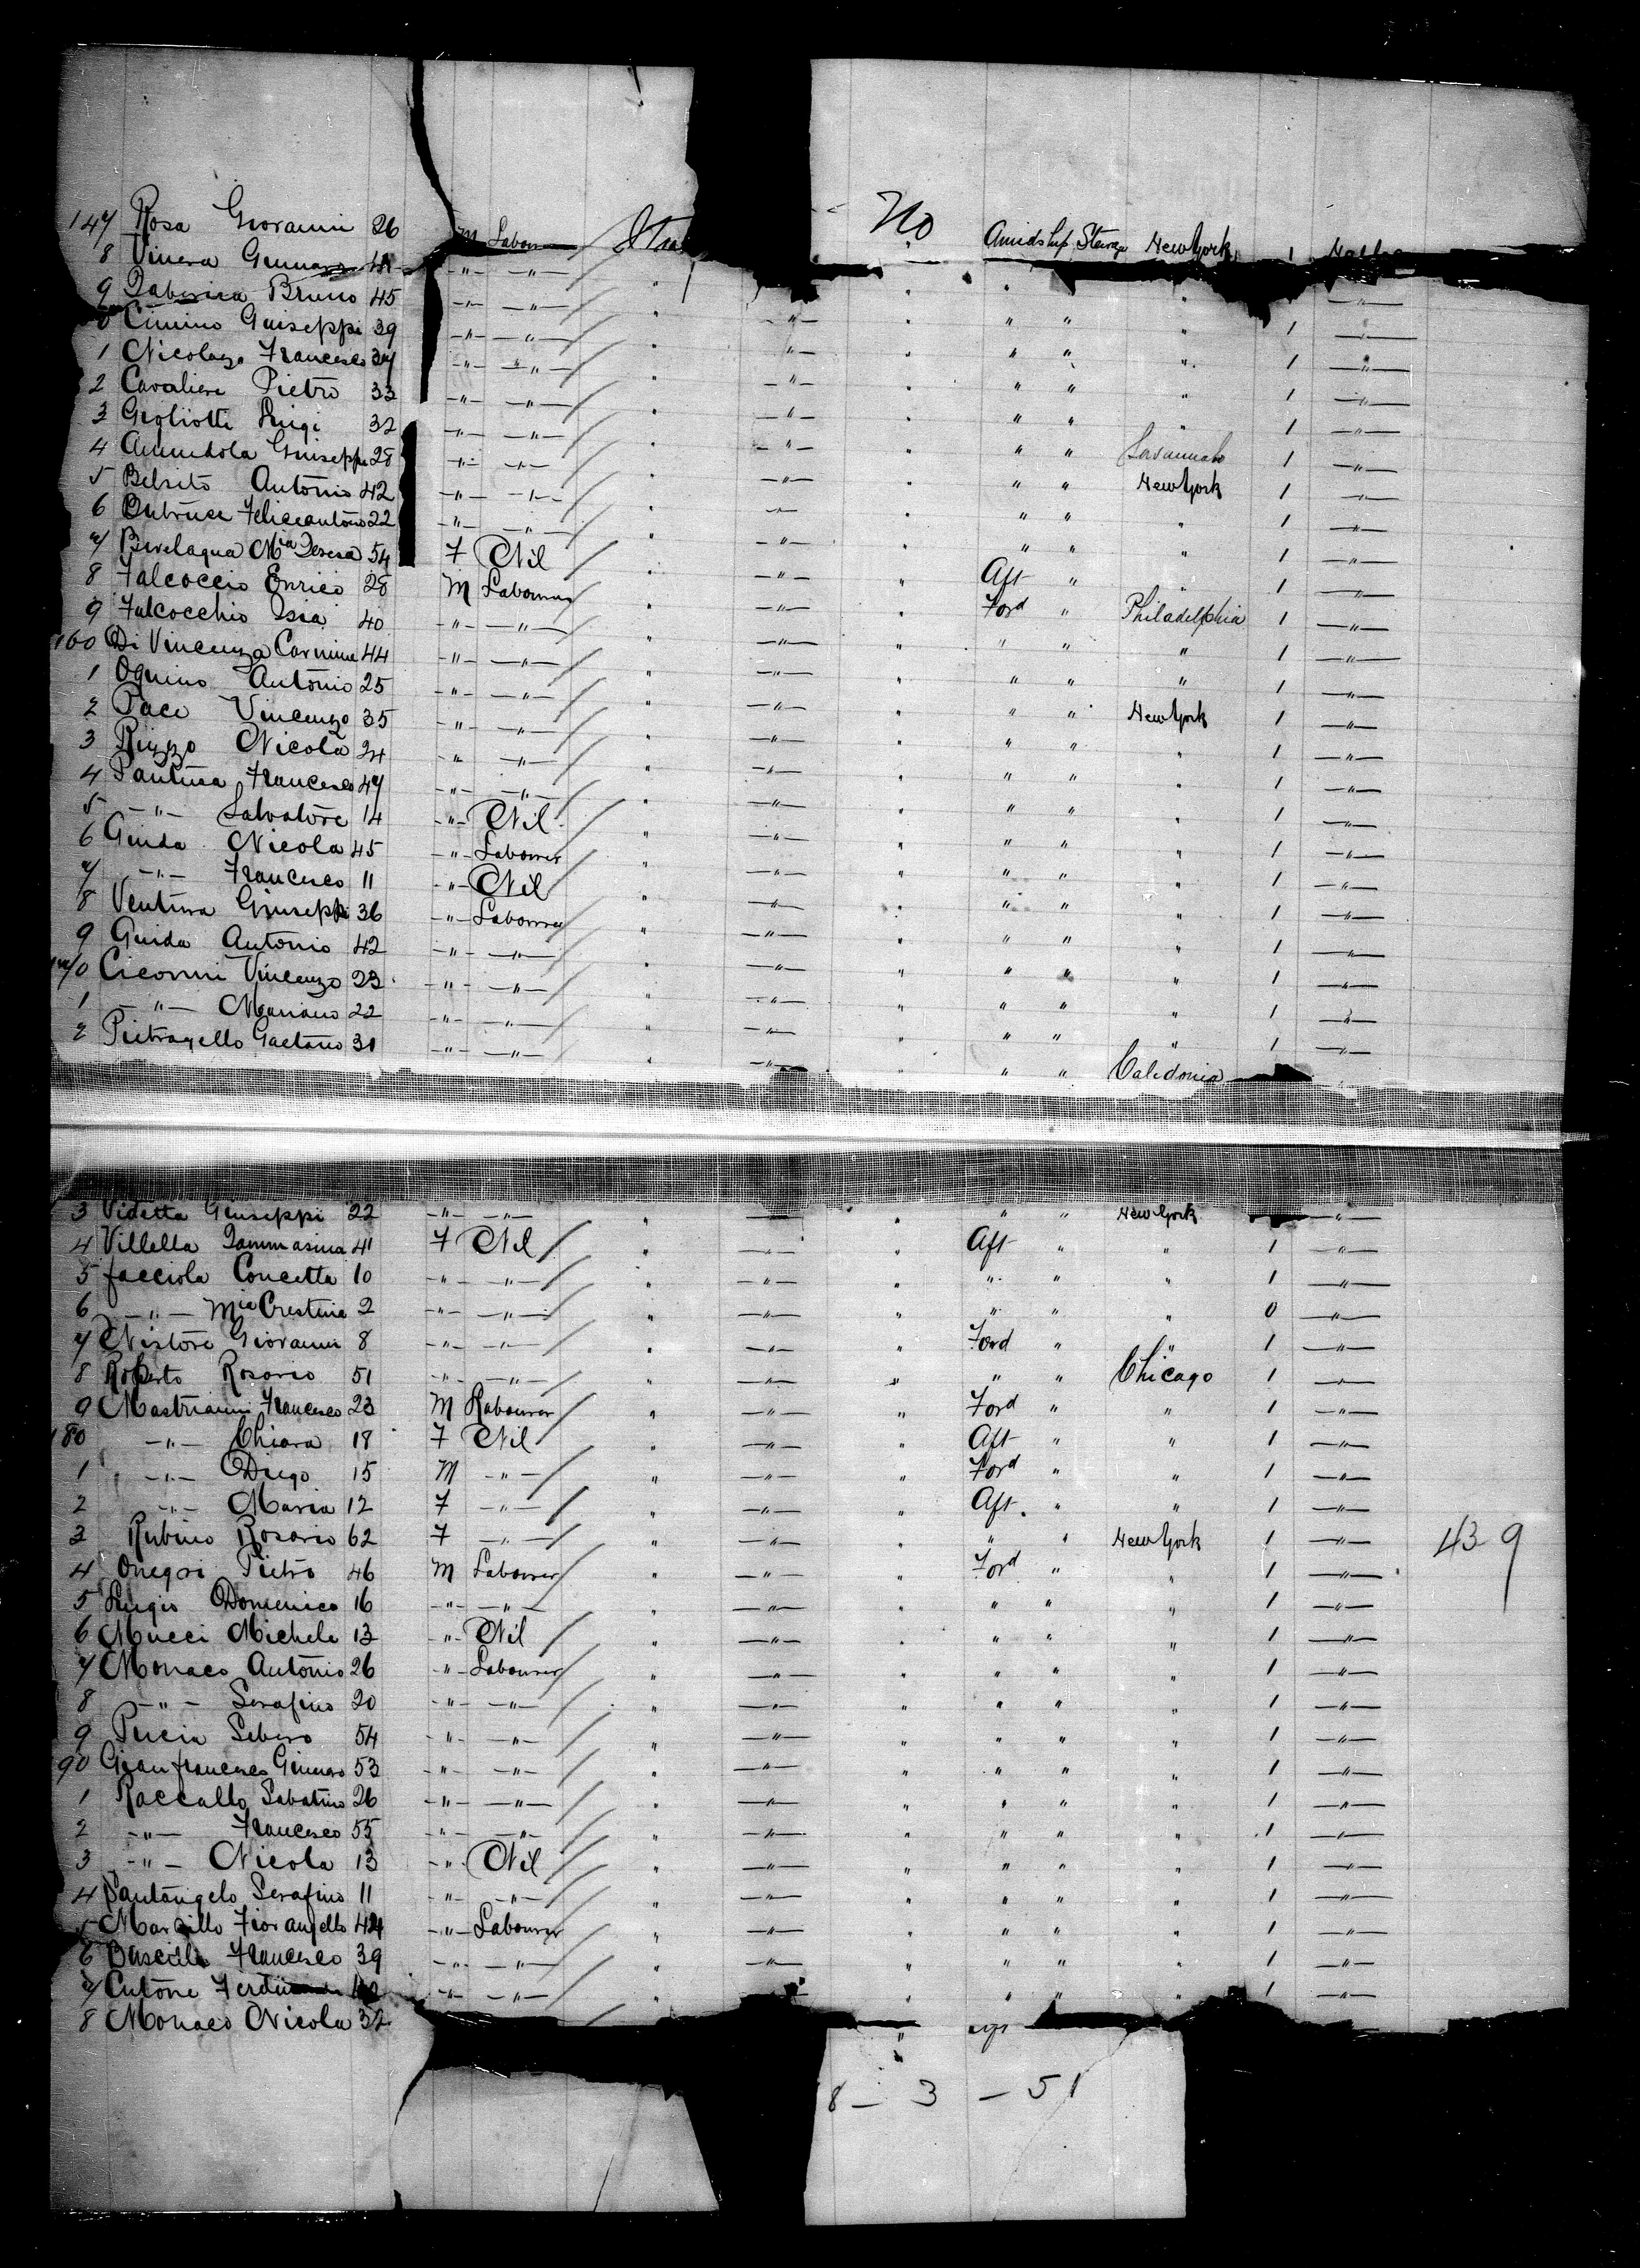 147 Rosa Giovanni 26 M Labou Ita No Amidship Steerage New York 1 Naples
8 Vinera Gennaro -"- -"-
9 Taberica Bruno 45 -"- -"- " " " -"-
0 Cimino Guiseppi 39 -"- -"- " -"- " " " " 1 -"-
1 Nicolazo Francesco 37 -"- -"- " -"- " " " " 1 -"-
2 Cavaliere Pietro 33 -"- -"- " -"- " " " " 1 -"-
3 Gigliotti Luigi 32 -"- -"- " -"- " " " " 1 -"-
4 Amendola Guiseppi 28 -"- -"- " -"- " " " Savannah 1 -"-
5 Belsito Antonio 42 -"- -"- " -"- " " " New York 1 -"-
6 Butruce Feliceantonio 22 -"- -"- " -"- " " " " 1 -"-
7 Bevelaqua Mia Teresa 54 F Nil " -"- " " " " 1 -"-
8 Falcoccio Enrico 28 M Labourer " -"- " Aft " " 1 -"-
9 Falcocchio Isia 40 -"- -"- " -"- " Ford " Philadelphia 1 -"-
160 Di Vincenzo Carmine 44 -"- -"- " -"- " " " " 1 -"-
1 Oquino Antonio 25 -"- -"- " -"- " " " " 1 -"-
2 Pace Vincenzo 35 -"- -"- " -"- " " " New York 1 -"-
3 Rizzo Nicola 24 -"- -"- " -"- " " " " 1 -"-
4 Pantusa Francesco 47 -"- -"- " -"- " " " " 1 -"-
5 -"- Salvatore 14 -"- Nil " -"- " " " " 1 -"-
6 Guida Nicola 45 -"- Labourer " -"- " " " " 1 -"-
7 -"- Francesco 11 -"- Nil " -"- " " " " 1 -"-
8 Ventura Giuseppi 36 -"- Labourer " -"- " " " " 1 -"-
9 Guida Antonio 42 -"- -"- " -"- " " " " 1 -"-
170 Cicorini Vincenzo 23 -"- -"- " -"- " " " " 1 -"-
1 -"- Mariano 22 -"- -"- " -"- " " " " 1 -"-
2 Pietragello Gaetano 31 -"- -"- " -"- " " " Caledonia
3 Videtta Giuseppi 22 -"- -"- " -"- " " " New York -"-
4 Villella Tommasina 41 F Nil " -"- " Aft " " 1 -"-
5 Facciola Concetta 10 -"- -"- " -"- " " " " 1 -"-
6 -"- Mia Crestina 2 -"- -"- " -"- " " " " 0 -"-
7 Nistore Giovanni 8 -"- -"- " -"- " Ford " " 1 -"-
8 Roberto Rosario 51 -"- -"- " -"- " " " Chicago 1 -"-
9 Mastrianni Francesco 23 M Labourer " -"- " Ford " " 1 -"-
180 -"- Chiara 18 F Nil " -"- " Aft " " 1 -"-
1 -"- Diego 15 M -"- " -"- " Ford " " 1 -"-
2 -"- Maria 12 F -"- " -"- " Aft " " 1 -"-
3 Rubino Rosario 62 F -"- " -"- " " " New York 1 -"- 439
4 Onegri Pietro 46 M Labourer " -"- " Ford " " 1 -"-
5 Luigis Domenico 16 -"- -"- " -"- " " " " 1 -"-
6 Mucci Michele 13 -"- Nil " -"- " " " " 1 -"-
7 Monaco Antonio 26 -"- Labourer " -"- " " " " 1 -"-
8 -"- Serafino 20 -"- -"- " -"- " " " " 1 -"-
9 Pucia Sebero 54 -"- -"- " -"- " " " " 1 -"-
90 Gianfrancesco Gennaro 53 -"- -"- " -"- " " " " 1 -"-
1 Raccallo Sabatino 26 -"- -"- " -"- " " " " 1 -"-
2 -"- Francesco 55 -"- -"- " -"- " " " " 1 -"-
3 -"- Nicola 13 -"- Nil " -"- " " " " 1 -"-
4 Santangelo Serafino 11 -"- -"- " -"- " " " " 1 -"-
5 Marsillo Fiorangello 42 -"- Labourer " -"- " " " " 1 -"-
6 Francesco 39 -"- -"- " -"- " " " " 1 -"-
7 Cutone -"- -"- " " " " " 1 -"-
8 Monaco Nicola 32
8 - 3 - 51